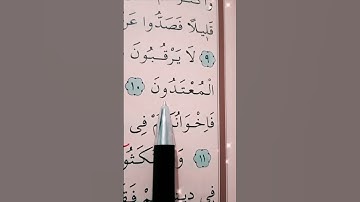 قَلِيلًا فَصَدُّوا عَنْ
٩ لَا يَرْقُبُونَ
الْمُعْتَدُونَ ١٠
فَاِخْوَانُكُمْ فِي
١١
فِي